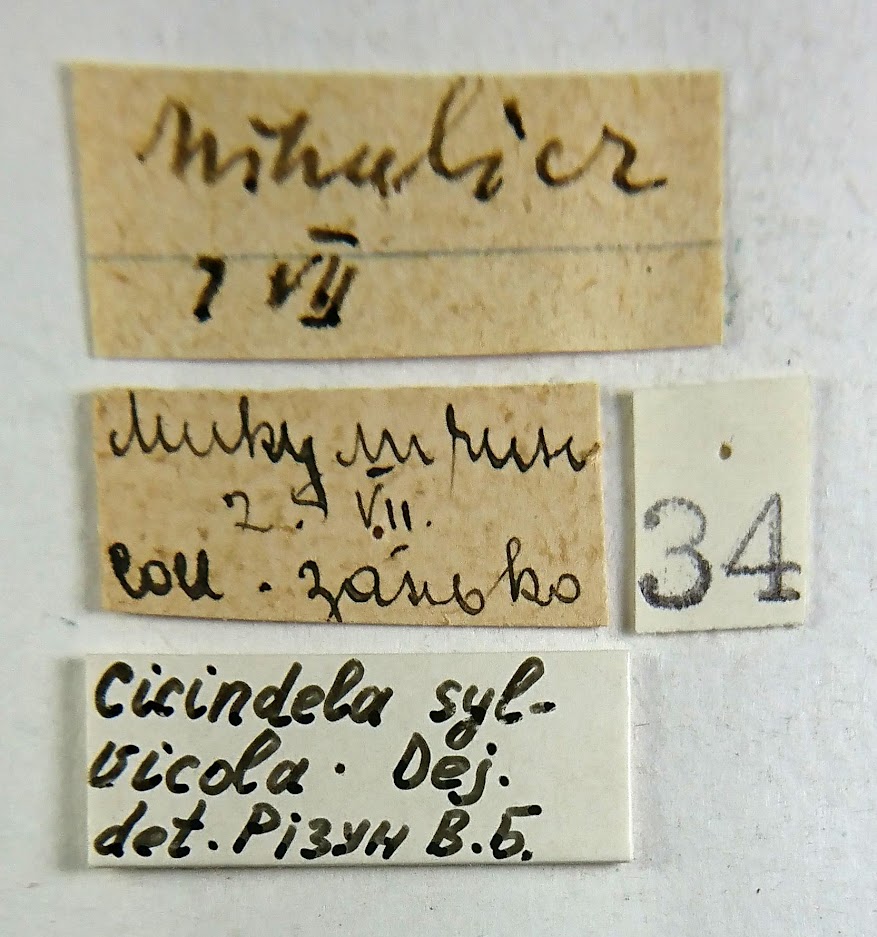 Mikulicz
7 VII
Микуличин
2. VII.
coll.
34
Cicindela syl-
vicola. Dej.
det. Різун В.Б.